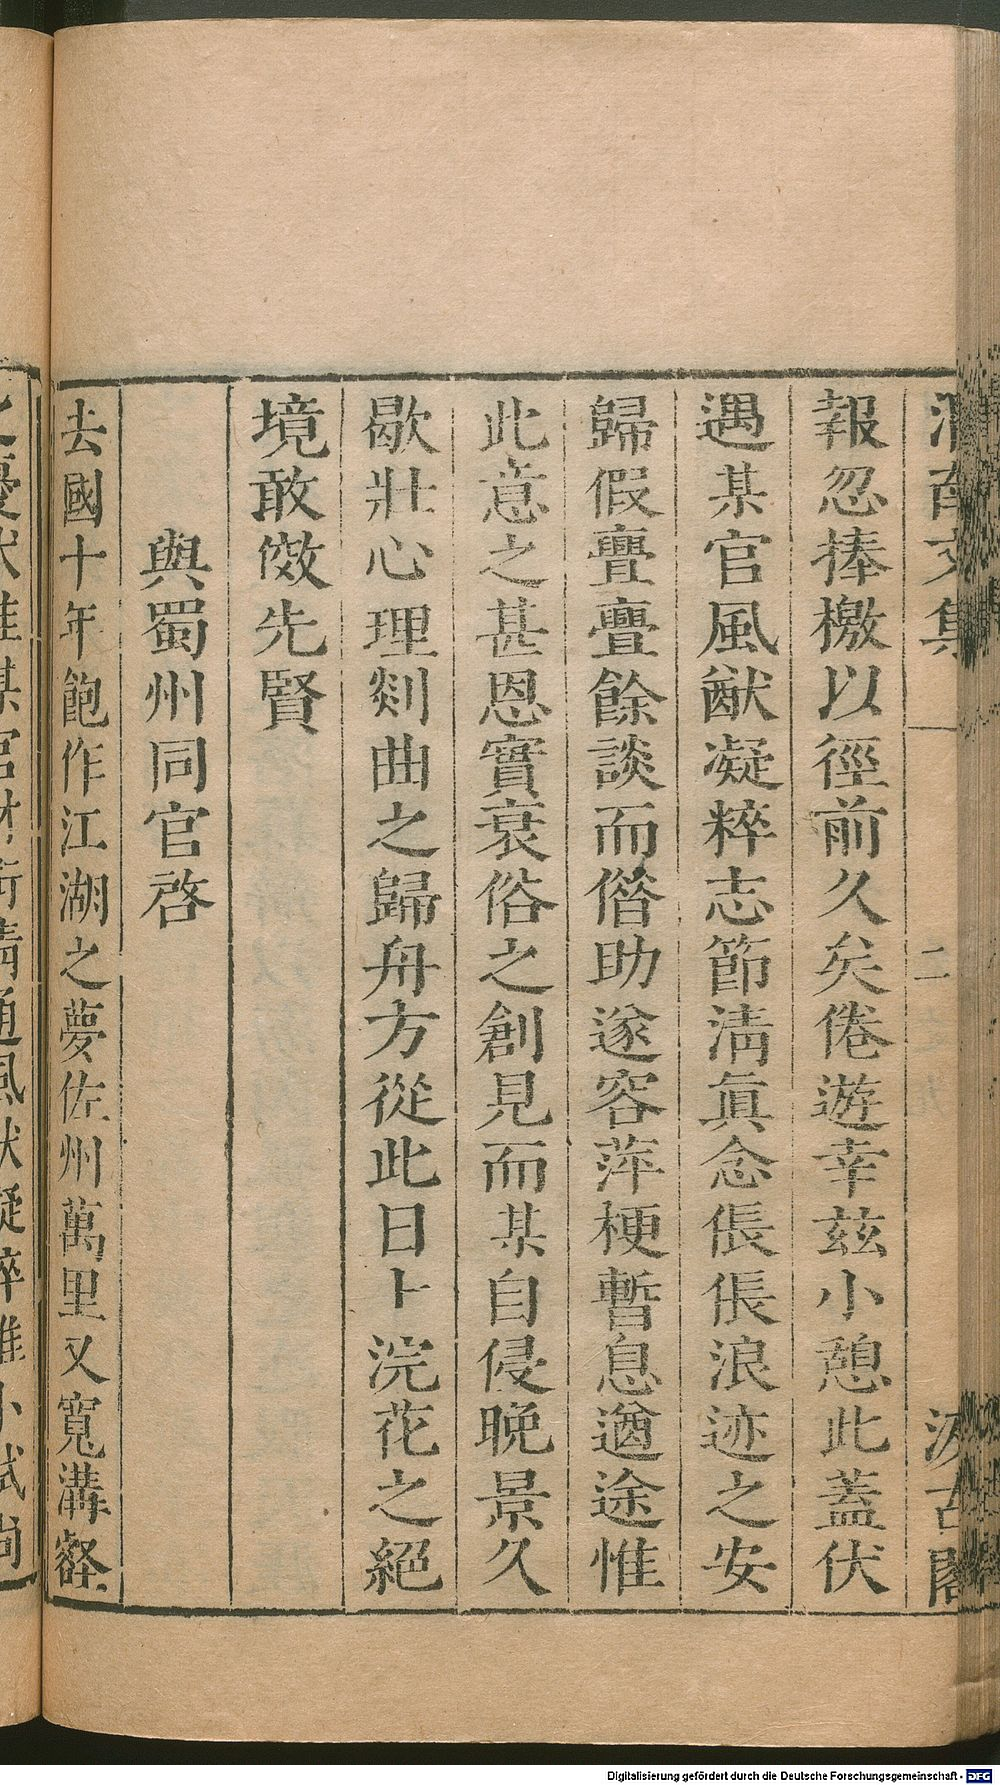 渭南文集 二 汲古閣
報忽捧檄以徑前久矣倦遊幸茲小憩此蓋伏
遇某官風猷凝粹志節淸眞念倀倀浪迹之安
歸假亹亹餘談而僭助遂容萍梗暫息遒途惟
此意之甚恩實衰俗之創見而某自侵晚景久
歇壯心理剡曲之歸舟方從此日卜浣花之絕
境敢傚先賢
與蜀州同官啓
去國十年飽作江湖之夢佐州萬里又寬溝壑
之憂伏惟某官財術淸通風猷凝粹雖小試尙
Digitalisierung gefördert durch die Deutsche Forschungsgemeinschaft - DFG